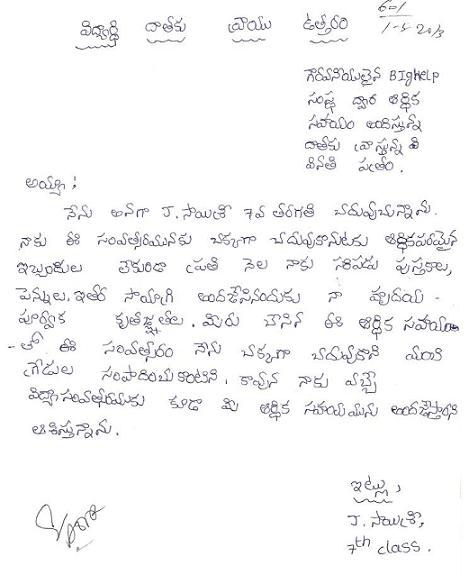 విద్యార్థి దాతకు వ్రాయు ఉత్తరం
1-5-2013
గౌరవనీయులైన BIgHELP
సంస్థ ద్వార ఆర్థిక
సహాయం అందిస్తున్న
దాతకు వ్రాస్తున్న
వినతి పత్రం.
అయ్యా;
నేను అనగా J. సాయిశ్రీ 7వ తరగతి చదువుచున్నాను.
నాకు ఈ సంవత్సరమునకు చక్కగా చదువుకొనుటకు ఆర్థికపరమైన
ఇబ్బందులు లేకుండా ప్రతి నెల నాకు సరిపడు పుస్తకాలు,
పెన్నులు, ఇతర సామాగ్రి అందచేసినందుకు నా హృదయ -
పూర్వక కృతజ్ఞతలు. మీరు చేసిన ఈ ఆర్థిక సహాయం
- తో ఈ సంవత్సరం నేను చక్కగా చదువుకొని మంచి
గ్రేడులు సంపాదించుకొంటిని. కావున నాకు వచ్చే
విద్యాసంవత్సరముకు కూడా మీ ఆర్థిక సహాయమును అందచేస్తారని
ఆశిస్తున్నాను.
ఇట్లు,
J. సాయిశ్రీ,
7th class.